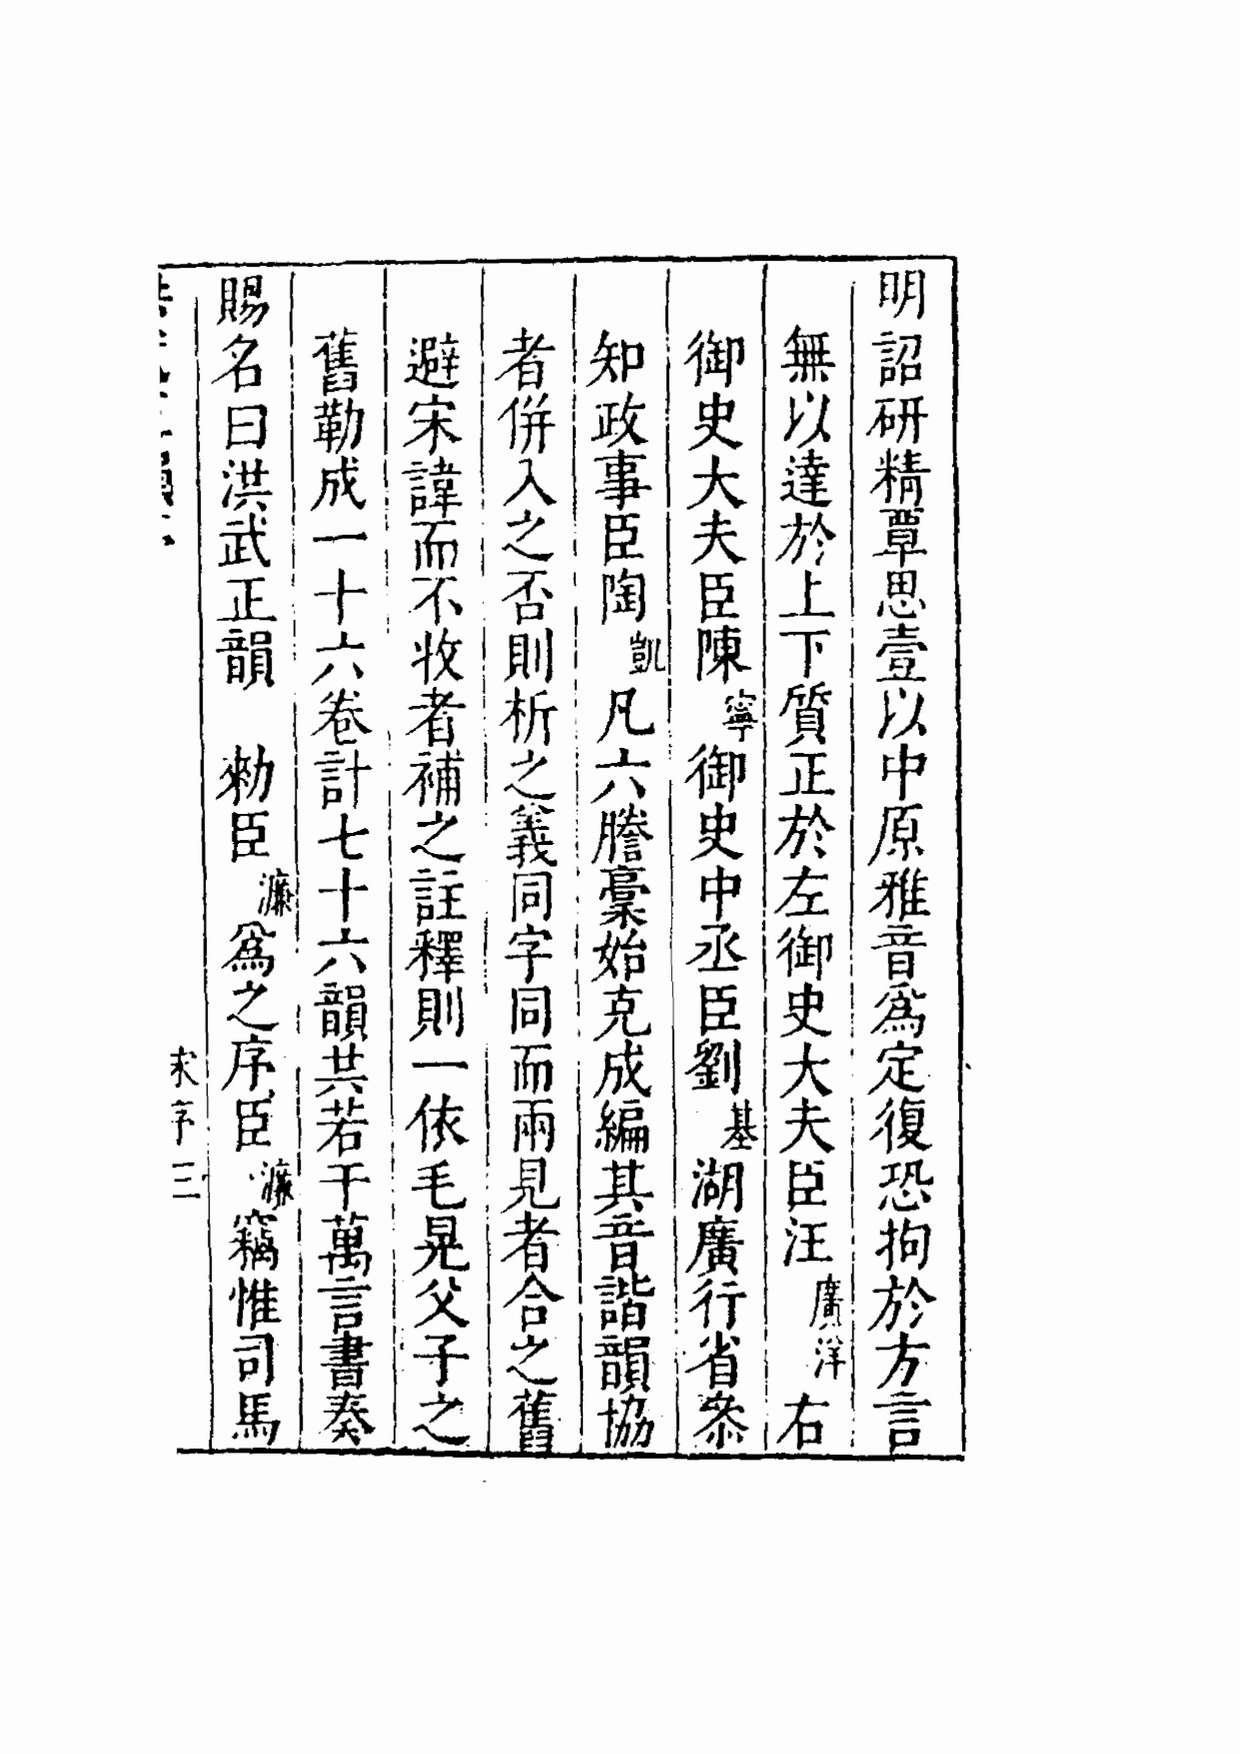 明詔研精覃思壹以中原雅音爲定復恐拘於方言
無以達於上下質正於左御史大夫臣汪廣洋右
御史大夫臣陳寧御史中丞臣劉基湖廣行省叅
知政事臣陶凱凡六謄稾始克成編其音諧韻協
者併入之否則析之義同字同而兩見者合之舊
避宋諱而不收者補之註釋則一依毛晃父子之
舊勒成一十六卷計七十六韻共若干萬言書奏
賜名曰洪武正韻　勑臣濂爲之序臣濂竊惟司馬
序三